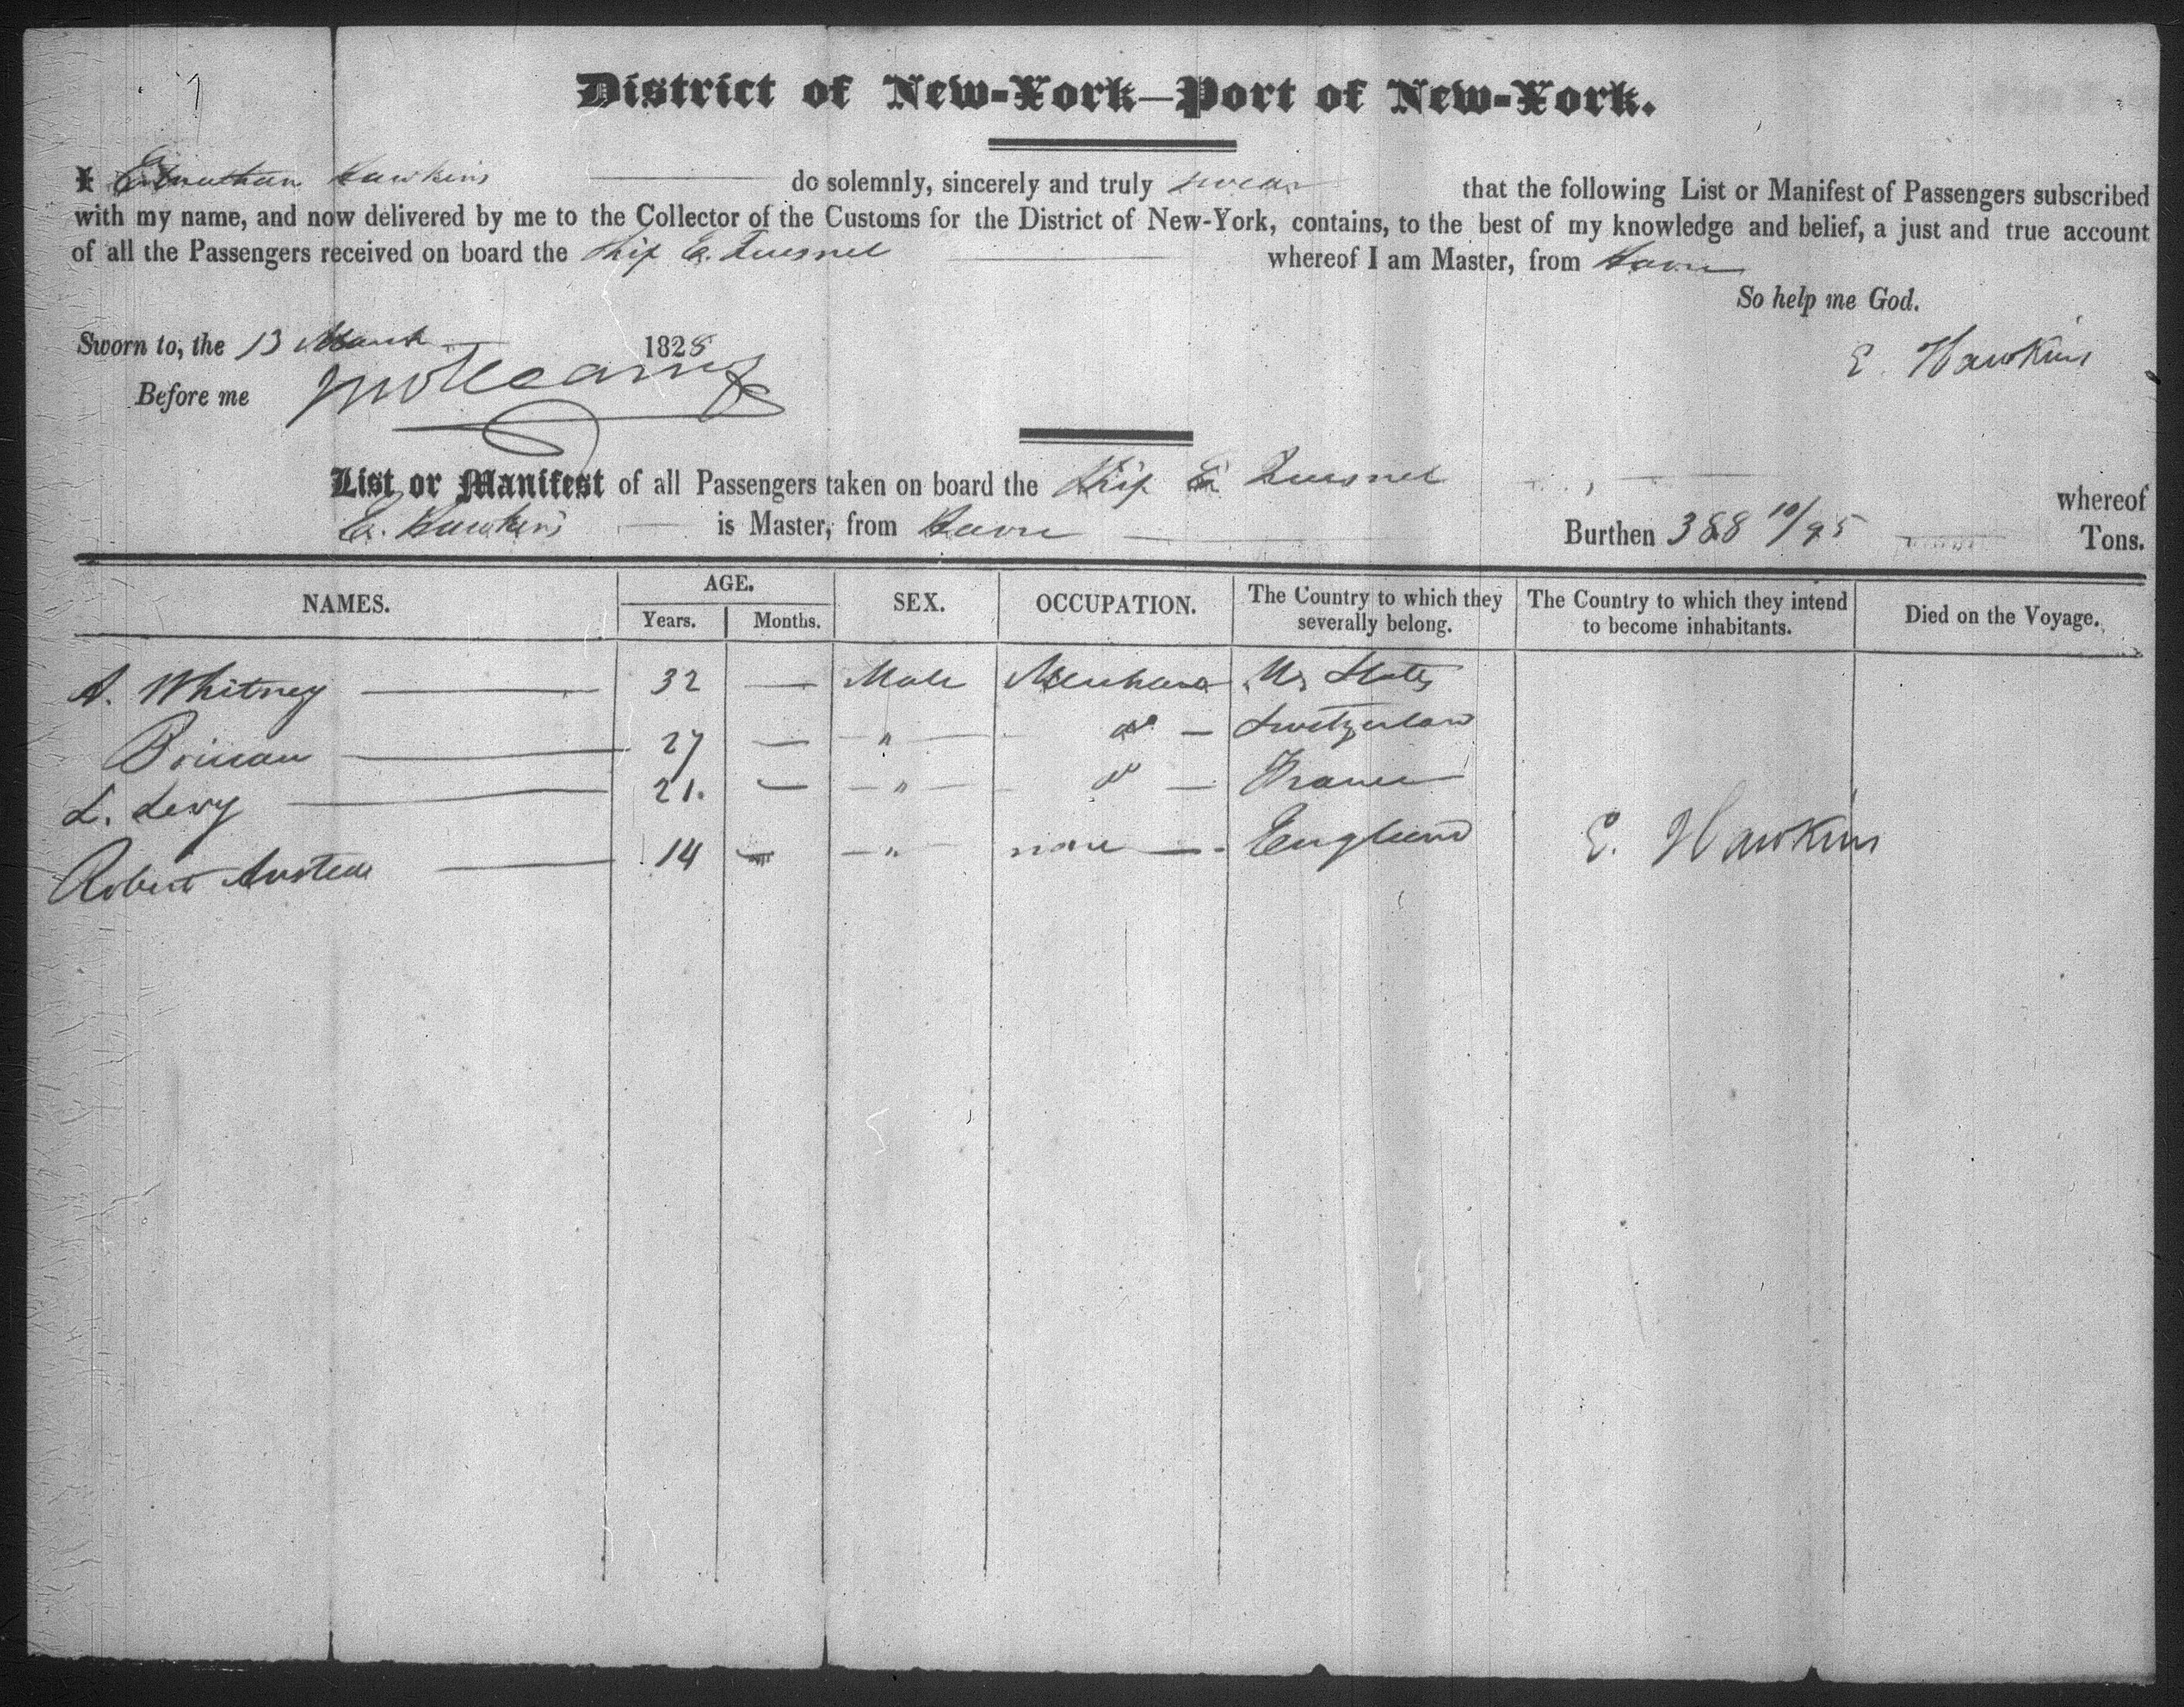 District of New-York—Port of New-York.
I Elnathan Hawkins do solemnly, sincerely and truly swear that the following List or Manifest of Passengers subscribed
with my name, and now delivered by me to the Collector of the Customs for the District of New-York, contains, to the best of my knowledge and belief, a just and true account
of all the Passengers received on board the Ship E. Quesnel whereof I am Master, from Havre
So help me God.
Sworn to, the 13 March 1828
E. Hawkins
Before me
List or Manifest of all Passengers taken on board the Ship E Quesnel whereof
E. Hawkins is Master, from Havre Burthen 388 10/95 Tons.
NAMES. AGE. Years. Months. SEX. OCCUPATION. The Country to which they severally belong. The Country to which they intend to become inhabitants. Died on the Voyage.
A. Whitney — 32 — Male Merchant U, States
27 — " — do — Switzerland
L. Levy — 21. — " — do — France
Robert — 14 — " — none — England
E. Hawkins